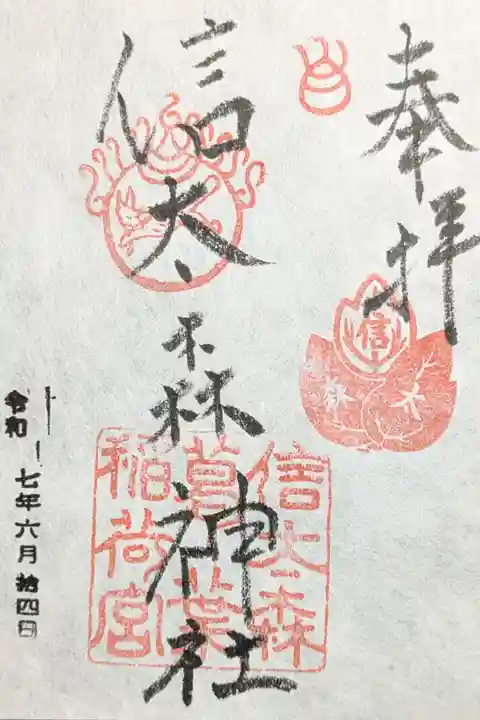 奉拝
信
太
森
信太森神社
信太森
葛葉
稲荷宮
令和七年六月拾四日